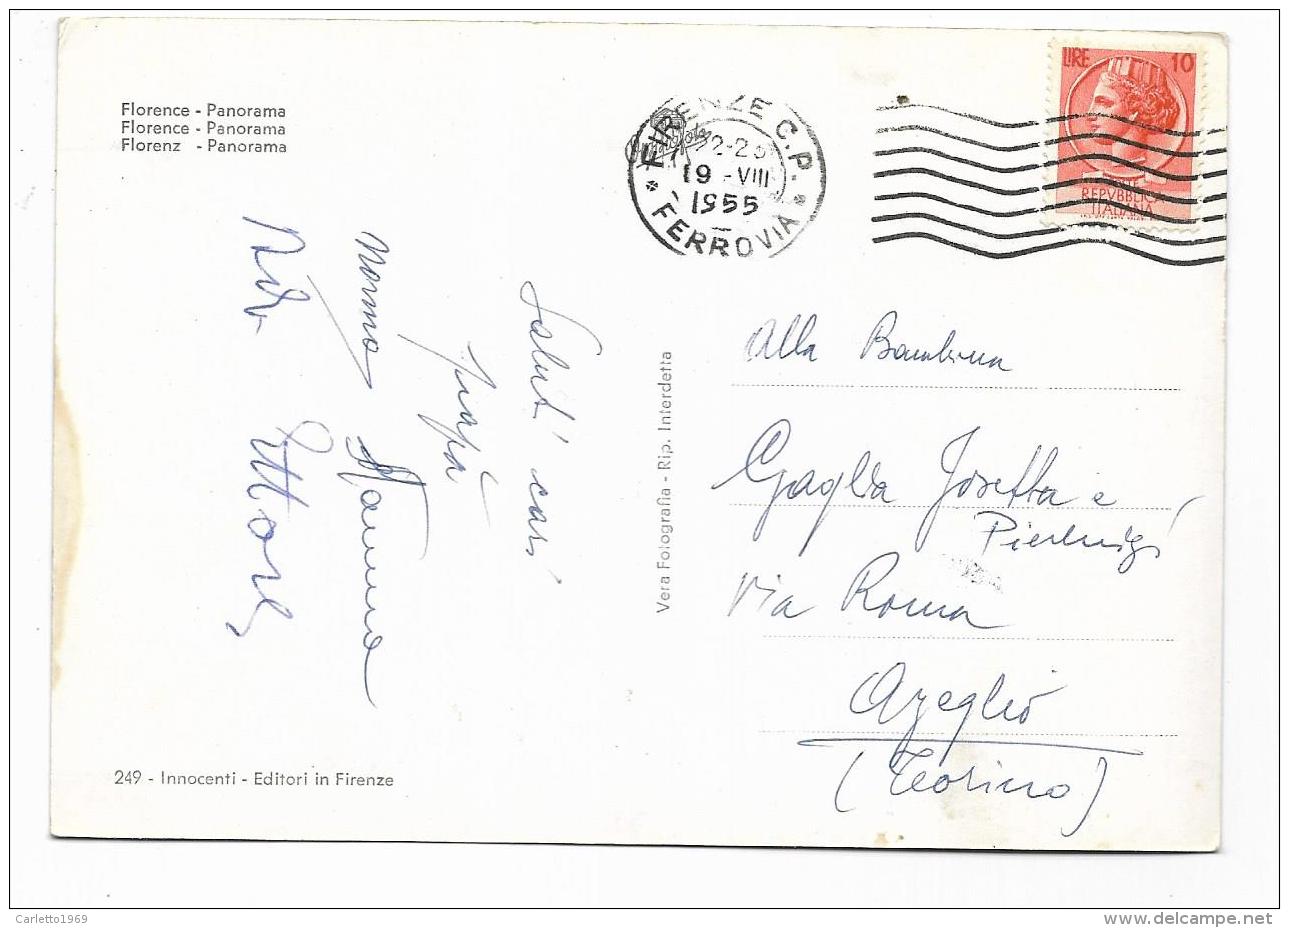 Florence - Panorama
Florence - Panorama
Florenz - Panorama
LIRE 10
REPVBBLICA
ITALIANA
FIRENZE C.P.
19 -VIII
1955
FERROVIA
Saluti cari
papà
nonno Mamma
Ettore
Vera Fotografia - Rip. Interdetta
Alla Bambina
Gaglia Josetta e
Pierluigi
Via Roma
Azeglio
(Torino)
249 - Innocenti - Editori in Firenze
Carletto1969
delcampe.net